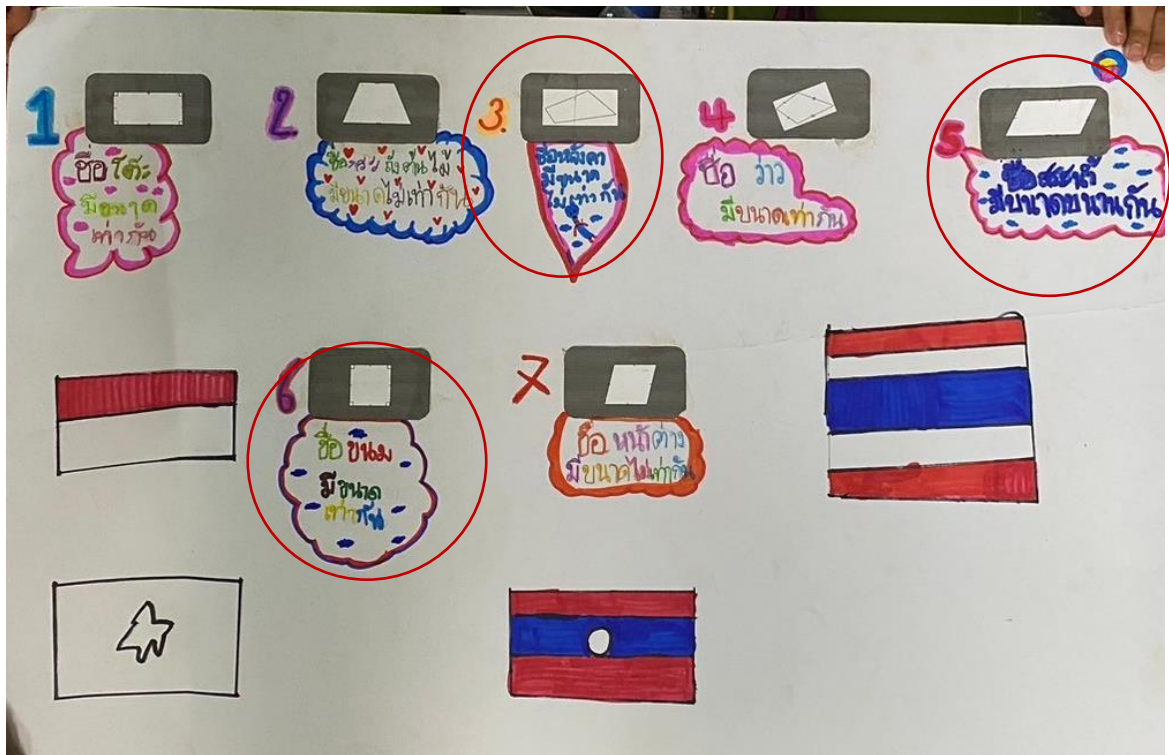 1
ชื่อ โต๊ะ
มีขนาด
เท่ากัน
2
ถังต้นไม้
มีขนาดไม่เท่ากัน
3.
ชื่อหลังคา
มีขนาด
ไม่เท่ากัน
4
ชื่อ ว่าว
มีขนาดเท่ากัน
5
ชื่อ
มีขนาดขนานกัน
6
ชื่อ ขนม
มีขนาด
เท่ากัน
7
ชื่อ หน้าต่าง
มีขนาดไม่เท่ากัน